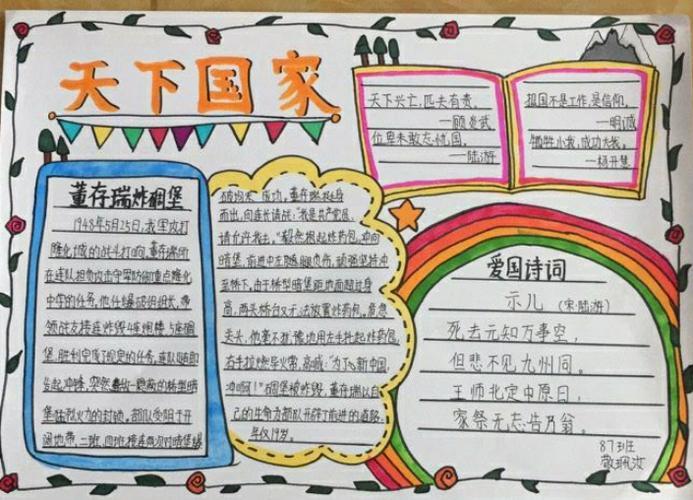 天下国家
天下兴亡，匹夫有责。
—顾炎武
位卑未敢忘忧国。
—陆游
祖国不是工作，是信仰。
—明诚
牺牲小我，成功大我。
—杨开慧
董存瑞炸碉堡
1948年5月25日，我军攻打
隆化城的战斗打响，董存瑞所
在连队担负攻击守军防御重点隆化
中学的任务，他任爆破组组长，带
领战友接连炸毁4座炮楼，5座碉
堡，胜利完成了规定的任务，连队随即
发起冲锋，突然敌一隐蔽的桥型暗
堡猛烈火力的封锁，部队受阻于开
阔地带，二班、四班接连两次对暗堡爆
破均未成功，董存瑞挺身
而出，向连长请战："我是共产党员，
请允许我去！"毅然抱起炸药包，冲向
暗堡，前进中左腿负伤，顽强坚持冲
至桥下，由于桥型暗堡距地面超过身
高，两头桥台又无法放置炸药包，危急
关头，他毫不犹豫地用左手托起炸药包，
右手拉燃导火索，高喊："为了新中国，
冲啊！"碉堡被炸毁，董存瑞以自
己的生命为部队开辟了前进的道路，
年仅19岁。
爱国诗词
示儿 （宋·陆游）
死去元知万事空，
但悲不见九州同。
王师北定中原日，
家祭无忘告乃翁。
87班
敬珮汝